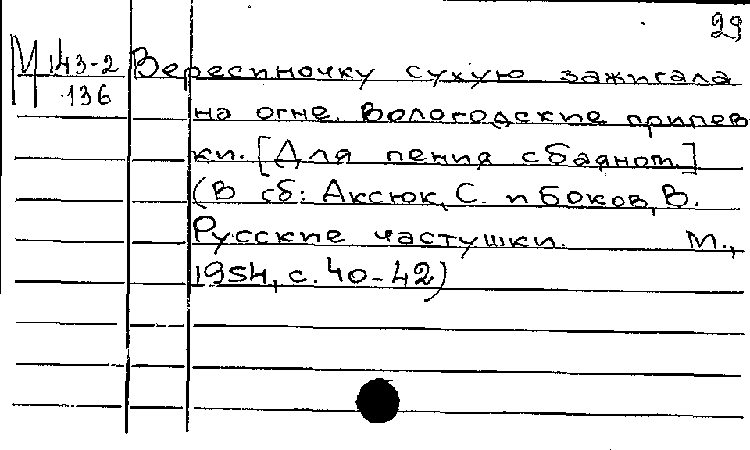 29
М 143-2 Вересиночку сухую зажигала
136 на огне. Вологодские припев
ки. [Для пения с баяном.]
(В сб: Аксюк, С. и Боков, В.
Русские частушки. М.,
1954, с. 40-42)